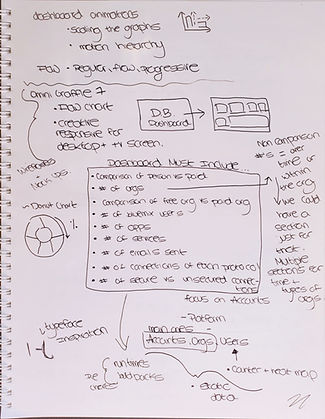 dashboard animations
• scaling the graphs
• motion hierarchy
Flow • Regular, flow, progressive
Omni Graffle 7
• Flow chart
• creative
responsive for
desktop + tv screen.
DB
Dashboard
Dashboard Must Include...
• Comparison of person vs paid
• # of orgs
• Comparison of free org vs paid org
• # of bluemix users
• # of apps
• # of services
• # of emails sent
• # of connections of each protocol
• # of secure vs unsecured connections
Non Comparison
#'s = over
time or
within
the org
we could
have a
section
just for
that.
Multiple
sections for
time +
types of
orgs.
Donut Chart
%
focus on Accounts
- Platform
main ones -
Accounts, Orgs, Users
• Counter + heat map
typeface
Inspiration
runtimes
build packs
• static
data